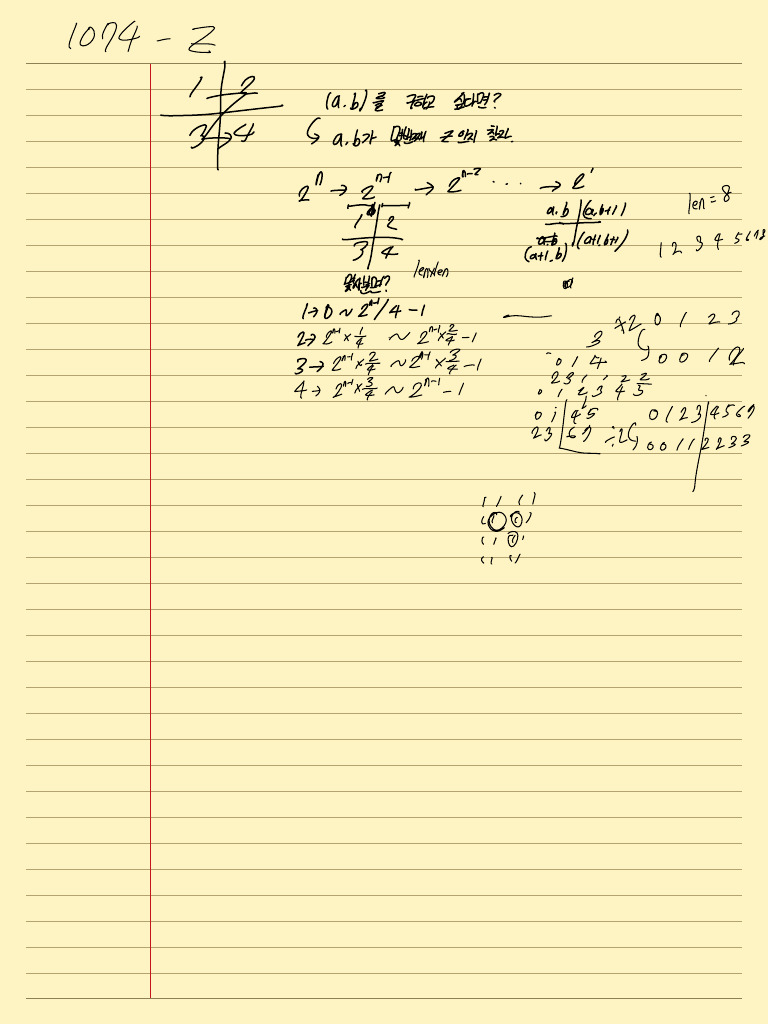 1074 - Z
1 2
3 → 4
(a.b)를 구하고 싶다면?
a.b가 몇번째 Z인지 찾자.
2^n → 2^n-1 → 2^n-2 ... → 2^1
1 2
3 4
a.b (a,b+1)
(a+1,b) (a+1,b+1)
len = 8
1 2 3 4 5 6 7 8
len/len
1 → 0 ~ 2^n-1/4 - 1
2 → 2^n-1 × 1/4 ~ 2^n-1 × 2/4 - 1
3 → 2^n-1 × 2/4 ~ 2^n-1 × 3/4 - 1
4 → 2^n-1 × 3/4 ~ 2^n-1 - 1
0 1 2 3
0 0 1 2
3
0 1 4
2 3 1 1 2 2
0 1 2 3 4 5
0 1 4 5
2 3 6 7
0 1 2 3 4 5 6 7
÷2 0 0 1 1 2 2 3 3